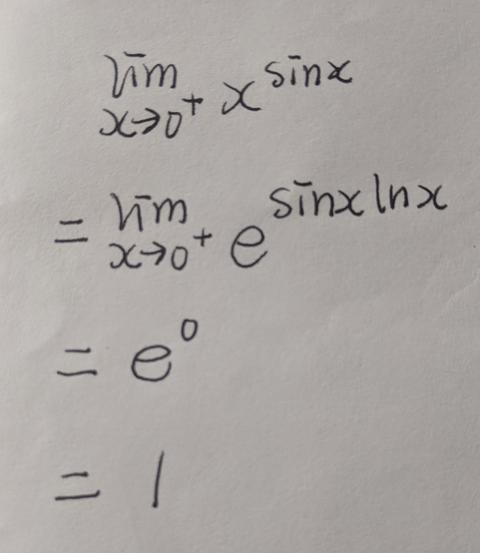 lim x→0⁺ x^sinx
= lim x→0⁺ e^sinx lnx
= e^0
= 1